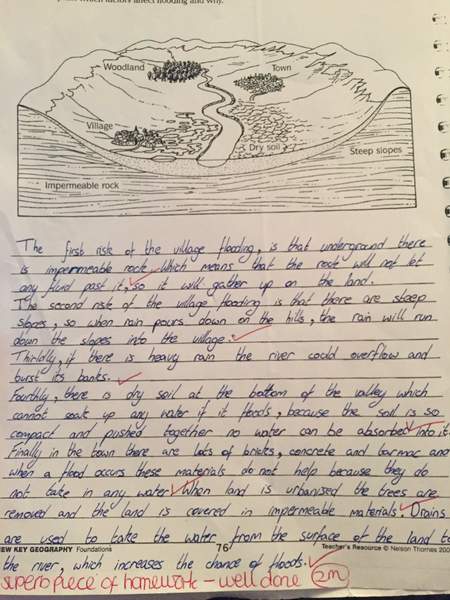 which factors affect flooding and why.
Woodland
Town
Village
Dry soil
Steep slopes
Impermeable rock
The first risk of the village flooding, is that underground there
is impermeable rock. Which means that the rock will not let
any fluid past it, so it will gather up on the land.
The second risk of the village flooding is that there are steep
slopes, so when rain pours down on the hills, the rain will run
down the slopes into the village.
Thirldly, if there is heavy rain the river could overflow and
burst its banks.
Fourthly, there is dry soil at the bottom of the valley which
cannot soak up any water if it floods, because the soil is so
compact and pushed together no water can be absorbed into it.
Finally in the town there are lots of bricks, concrete and tarmac and
when a flood occurs these materials do not help because they do
not take in any water. When land is urbanised the trees are
removed and the land is covered in impermeable materials. Drains
are used to take the water from the surface of the land to
NEW KEY GEOGRAPHY Foundations 76 Teacher's Resource © Nelson Thornes 200
the river, which increases the chance of floods.
superb piece of homework - well done 2m